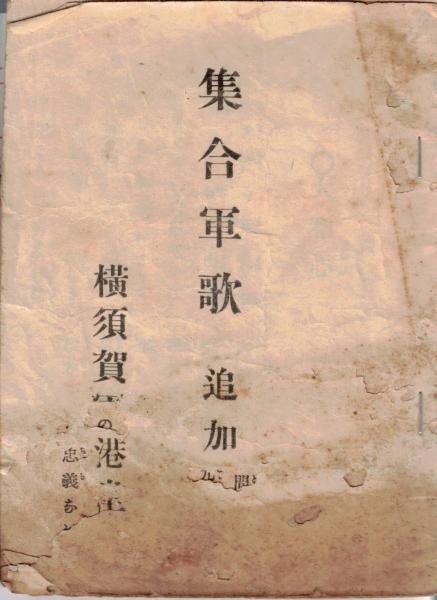 集合軍歌 追加
横須賀
の
港
忠義